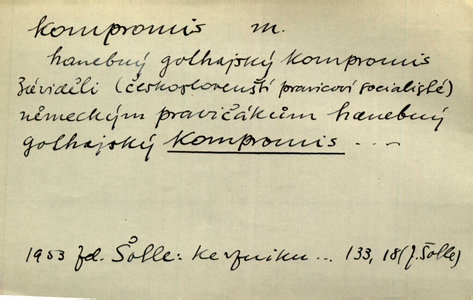 kompromis m.
hanebný gothajský kompromis
Záviděli (českoslovenští pravicoví socialisté)
německým pravičákům hanebný
gothajský kompromis ...
1953 Zd. Šolle: ... 133, 18 (J. Šolle)